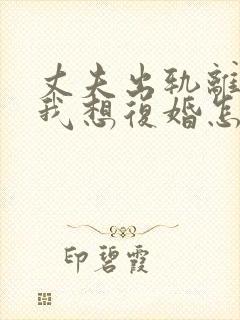 丈夫出轨離
我想復婚怎
印碧霞